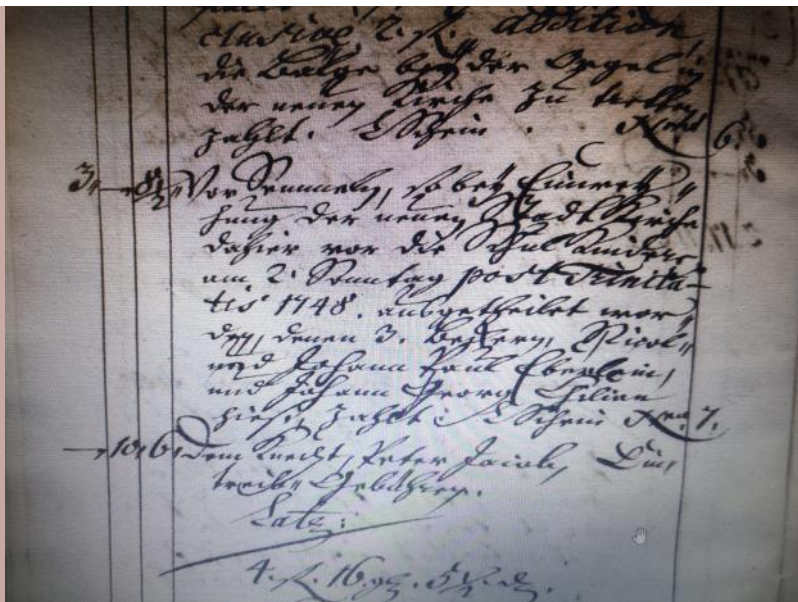 clusive 2. fl. addition,
die Bälge bey der Orgel in
der neuen Kirche zu tretten
zahlt. C Schein. No. 6.
3, — 8½ Vor Semmeln, so bey Einwey-
hung der neuen Stadt Kirche
dahier vor die Schul Kinder
am 2. Sonntag post Trinita-
tis 1748. ausgetheilet wor-
den, denen 3. Beckern, Nicol,
und Johann Paul Eberlein,
und Johann Georg Chilian
hies. zahlt C Schein No. 7.
— 10, 6, Dem Knecht, Peter Jacob, Ein-
treib-Gebühren.
Lat:
4. fl. 16. gl. 5½ d.